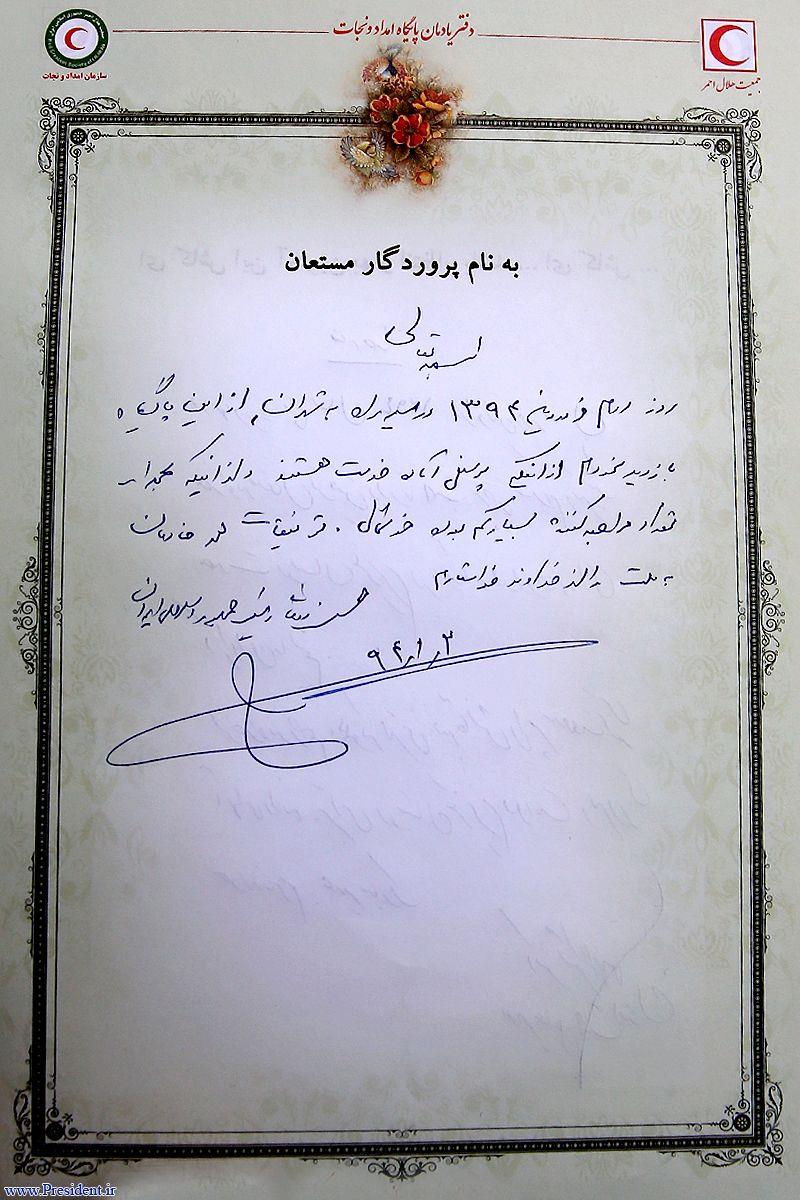 دفتر یادمان پایگاه امداد و نجات
سازمان امداد و نجات
جمعیت هلال احمر
به نام پروردگار مستعان
بسمه تعالی
روز سوم فروردین ۱۳۹۴ در مسیر به تهران از این پایگاه
بازدید نمودم از اینکه پرسنل آماده خدمت هستند و از اینکه بحمدالله
تعداد مراجعه کننده بسیار کم بوده خوشحالم. توفیقات همه خادمان
به ملت را از خداوند خواستارم
حسن روحانی رئیس جمهوری اسلامی ایران
۹۴/۱/۳
www.President.ir